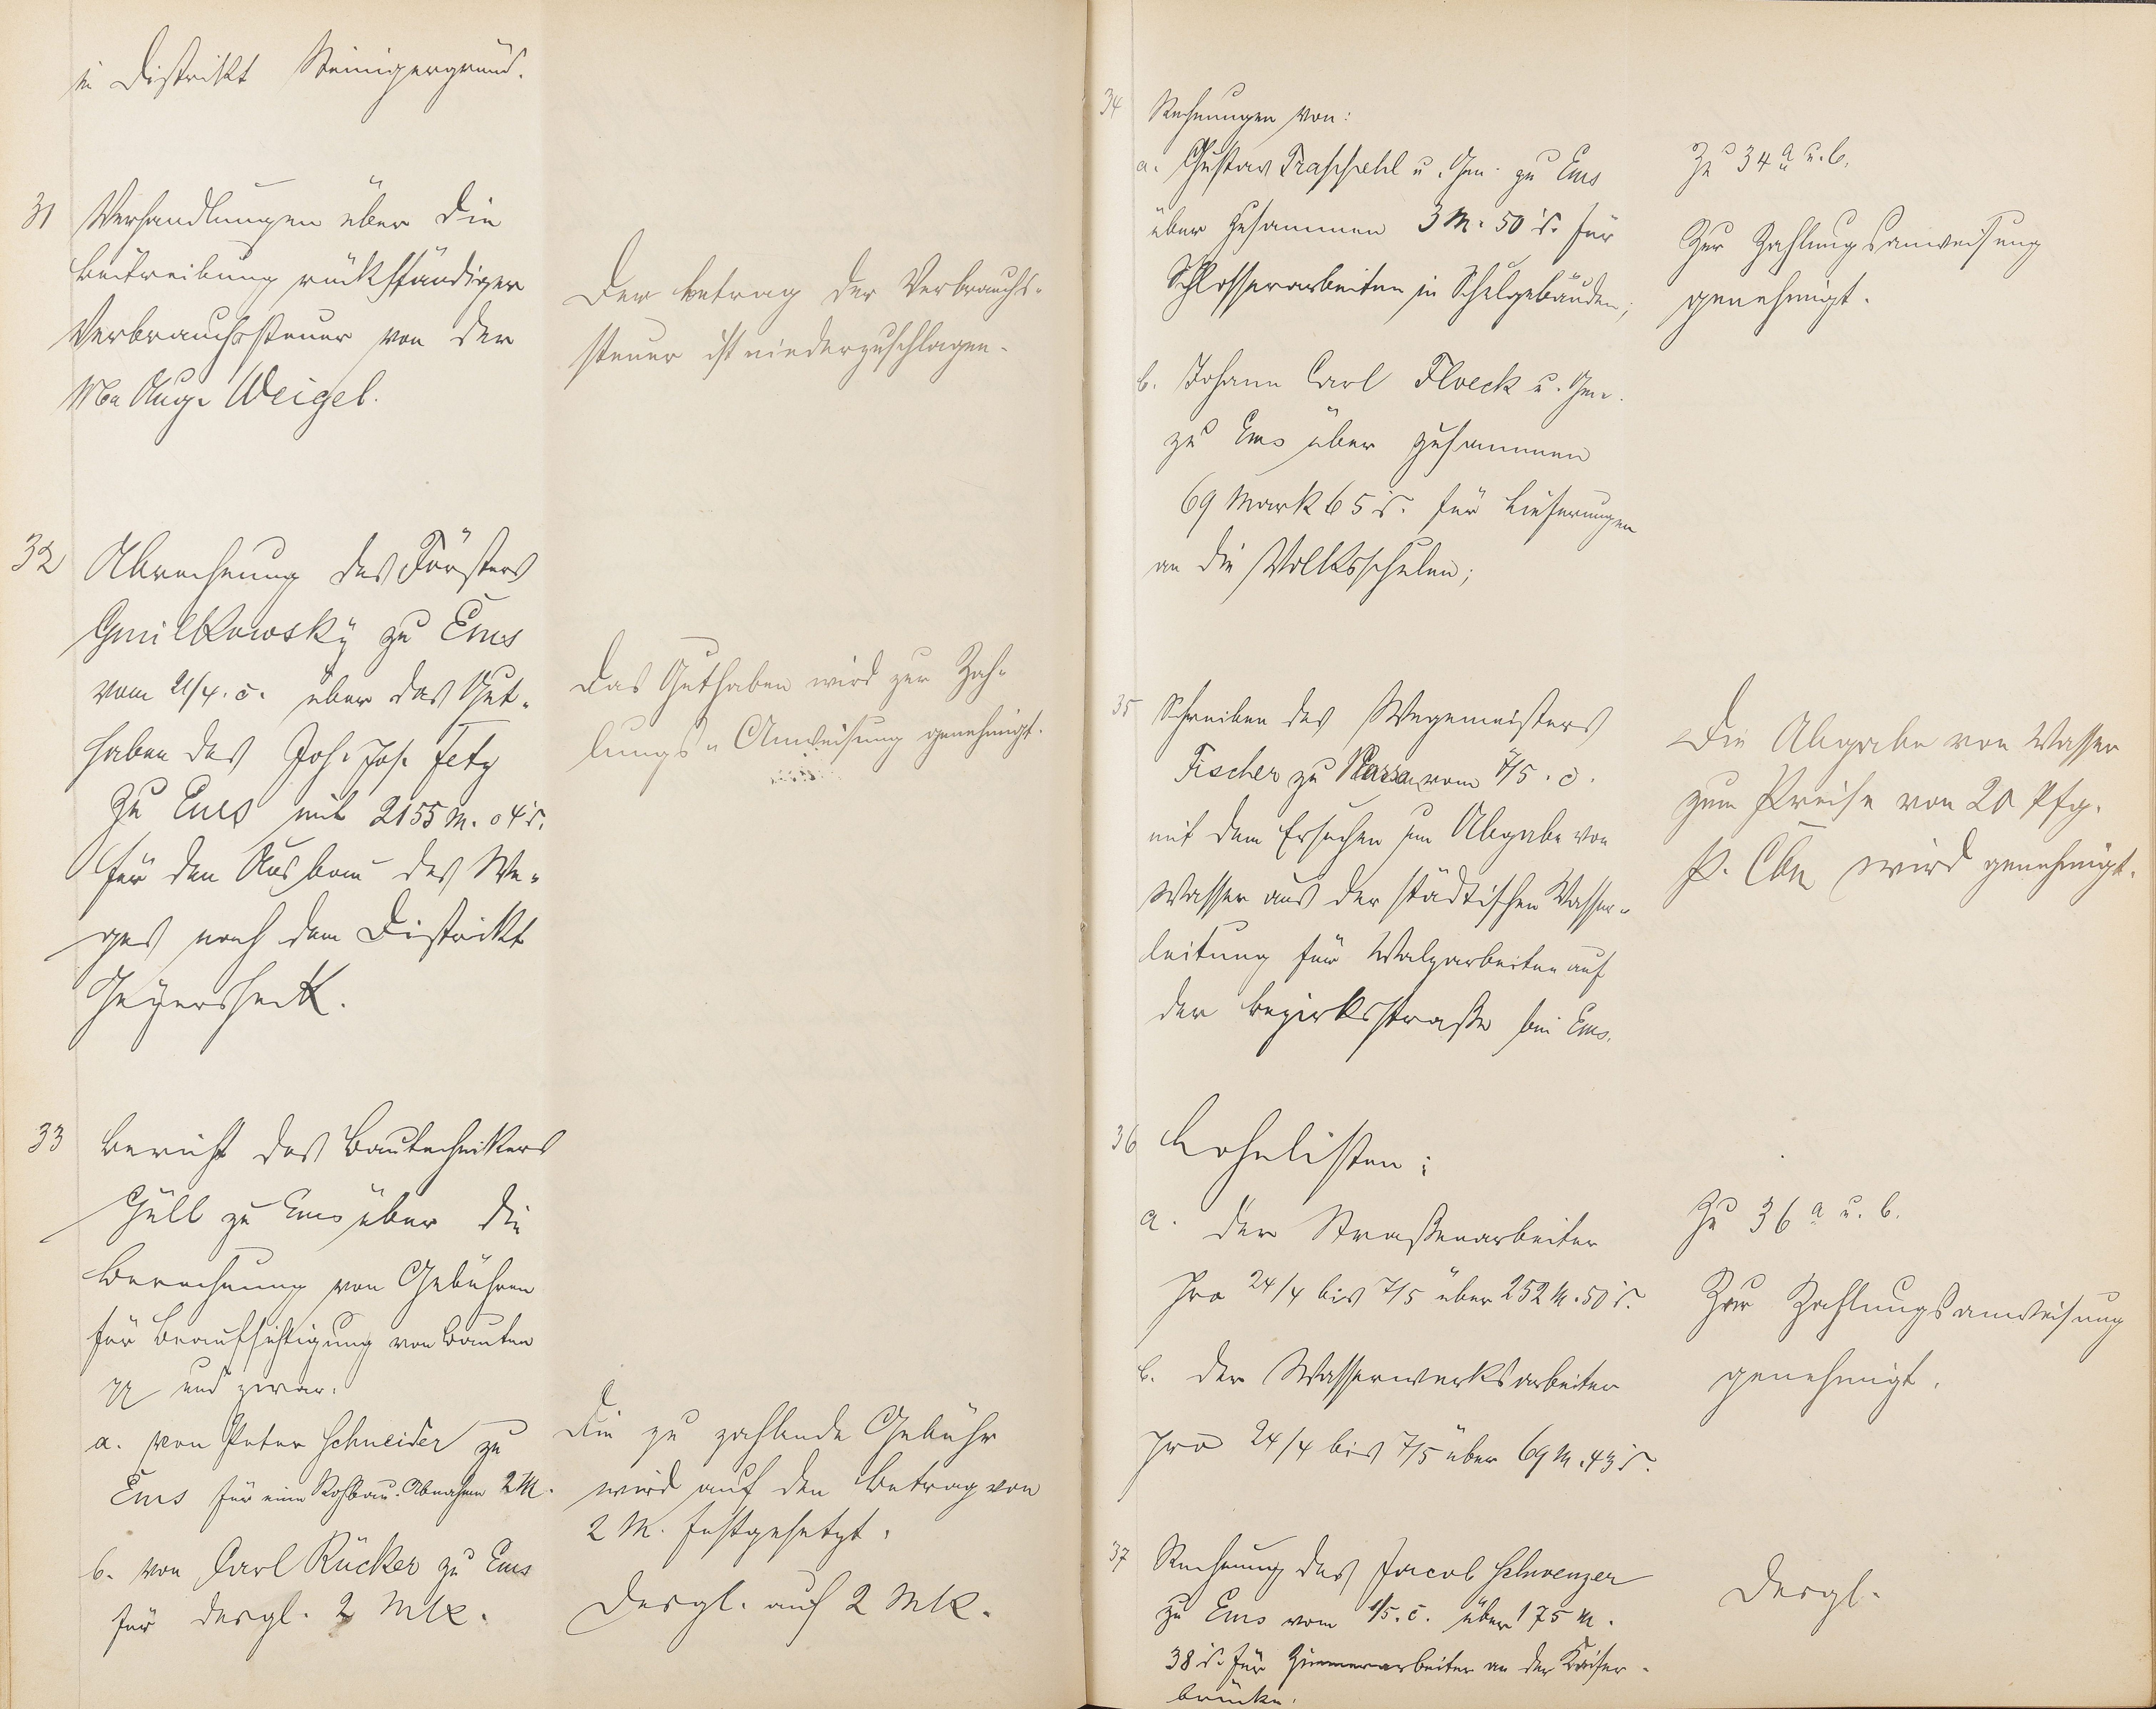 in Distrikt Steinigergrund.
31 Verhandlungen über die
Beitreibung rückständiger
Verbrauchssteuer von der
Aug. Weigel.
Der Betrag der Verbrauchs-
steuer ist niederzuschlagen.
32 Abrechnung des Försters
Gmilkowsky zu Ems
vom 21/4. c. über das Gut-
haben des Joh. Jos. Fetz
zu Ems mit 2155 M. 04 ₰.
für den Ausbau des We-
ges nach dem Distrikt
Geyersheck.
Das Guthaben wird zur Zah-
lungs-Anweisung genehmigt.
33 Bericht des Bautechnikers
Güll zu Ems über die
Berechnung von Gebühren
für Beaufsichtigung von Bauten
pp und zwar:
a. von Peter Schneider zu
Ems für eine Rohbau-Abnahme 2 M.
Die zu zahlende Gebühr
wird auf den Betrag von
2 M. festgesetzt.
b. von Carl Rücker zu Ems
für desgl. 2 Mk.
Desgl. auf 2 Mk.
34 Rechnungen von:
a. Gustav u. Gen. zu Ems
über zusammen 3 M. 50 ₰. für
Schlosserarbeiten in Schulgebäuden;
Zu 34 a u. b.
Zur Zahlungsanweisung
genehmigt.
b. Johann Carl Floeck u. Gen.
zu Ems über zusammen
69 Mark 65 ₰. für Lieferungen
an die Volksschulen;
35 Schreiben des Wegemeisters
Fischer zu Nassau vom 7/5. c.
mit dem Ersuchen um Abgabe von
Wasser aus der städtischen Wasser-
leitung für Walzarbeiten auf
der Bezirksstraße bei Ems.
Die Abgabe von Wasser
zum Preise von 20 Pfg.
p. Cbm wird genehmigt.
36 Lohnlisten:
a. der Straßenarbeiter
pro 24/4 bis 7/5 über 252 M. 50 ₰.
b. der Wasserwerksarbeiter
pro 24/4 bis 7/5 über 69 M. 43 ₰.
Zu 36 a u. b.
Zur Zahlungsanweisung
genehmigt.
37 Rechnung des Jacob Schwenzer
zu Ems vom 1/5. c. über 175 M.
38 ₰. für Zimmerarbeiten an der Kaiser-
brücke.
Desgl.